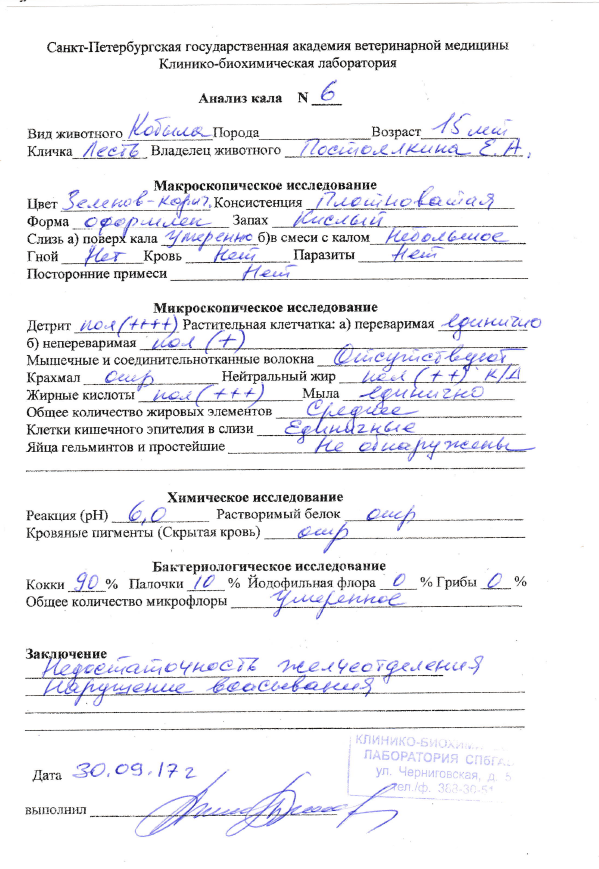 Санкт-Петербургская государственная академия ветеринарной медицины
Клинико-биохимическая лаборатория
Анализ кала N 6
Вид животного Кобыла Порода Возраст 15 лет
Кличка Лесть Владелец животного Постоялкина Е.А.
Макроскопическое исследование
Цвет Зеленов-корич. Консистенция Плотноватая
Форма оформлен Запах Кислый
Слизь а) поверх кала Умеренно б)в смеси с калом Небольшое
Гной Нет Кровь Нет Паразиты Нет
Посторонние примеси Нет
Микроскопическое исследование
Детрит пол(++++) Растительная клетчатка: а) переваримая единично
б) непереваримая пол (+)
Мышечные и соединительнотканные волокна Отсутствуют
Крахмал отр Нейтральный жир пол (++) к/д
Жирные кислоты пол(+++) Мыла единично
Общее количество жировых элементов Среднее
Клетки кишечного эпителия в слизи Единичные
Яйца гельминтов и простейшие Не обнаружены
Химическое исследование
Реакция (pH) 6,0 Растворимый белок отр
Кровяные пигменты (Скрытая кровь) отр
Бактериологическое исследование
Кокки 90 % Палочки 10 % Йодофильная флора 0 % Грибы 0 %
Общее количество микрофлоры Умеренное
Заключение
Недостаточность желчеотделения
Нарушение всасывания
КЛИНИКО-БИОХИМ
ЛАБОРАТОРИЯ СПбГА
ул. Черниговская, д. 5
тел./ф. 388-30-51
Дата 30.09.17 г
выполнил